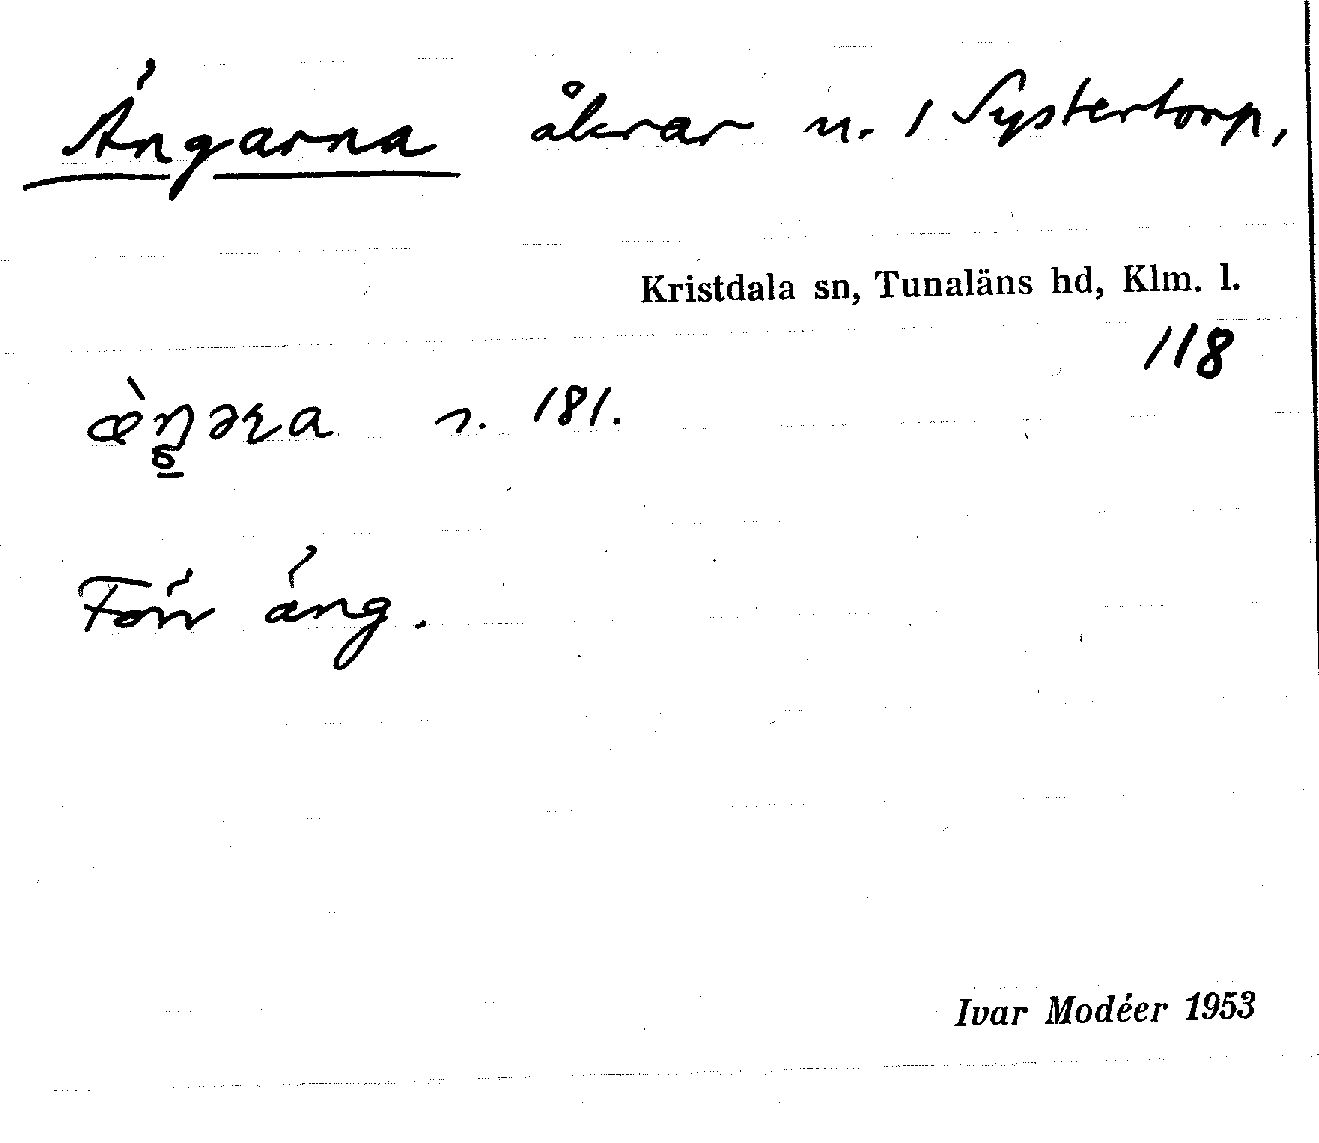 Ängarna åkrar n. 1 Systertorp,
Kristdala sn, Tunaläns hd, Klm. l.
118
æ̀ŋəra s. 181.
Förr äng.
Ivar Modéer 1953